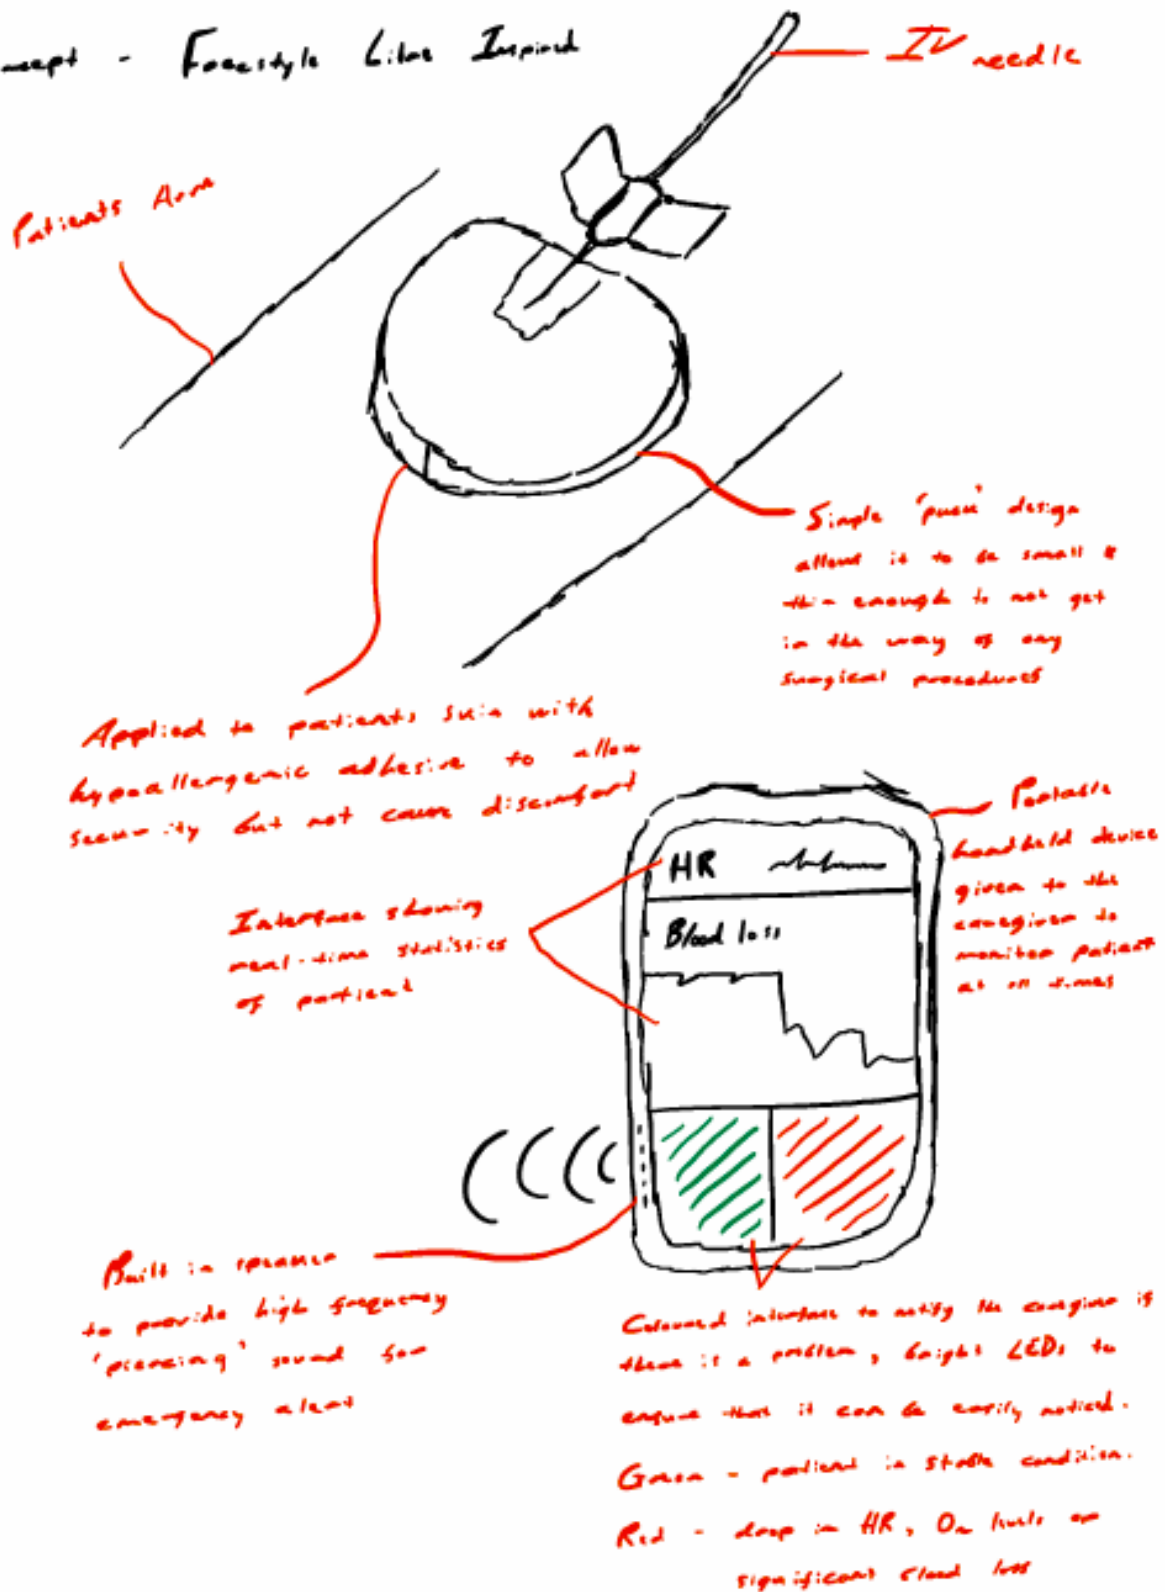 - Freestyle Libre Inspired
IV needle
Patients Arm
Simple 'puck' design
allows it to be small &
thin enough to not get
in the way of any
surgical procedures
Applied to patients skin with
hypoallergenic adhesive to allow
security but not cause discomfort
Portable
handheld device
given to the
caregiver to
monitor patient
at all times
HR
Blood loss
Interface showing
real-time statistics
of patient
Built in speaker
to provide high frequency
'piercing' sound for
emergency alert
Coloured interface to notify the caregiver if
there is a problem, bright LEDs to
ensure that it can be easily noticed.
Green - patient in stable condition.
Red - drop in HR, O2 levels or
significant blood loss